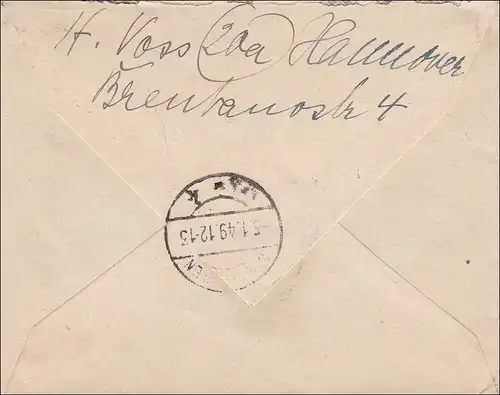 H. Voss (20a) Hannover
Brentanostr 4
5.1.49.12-13
k